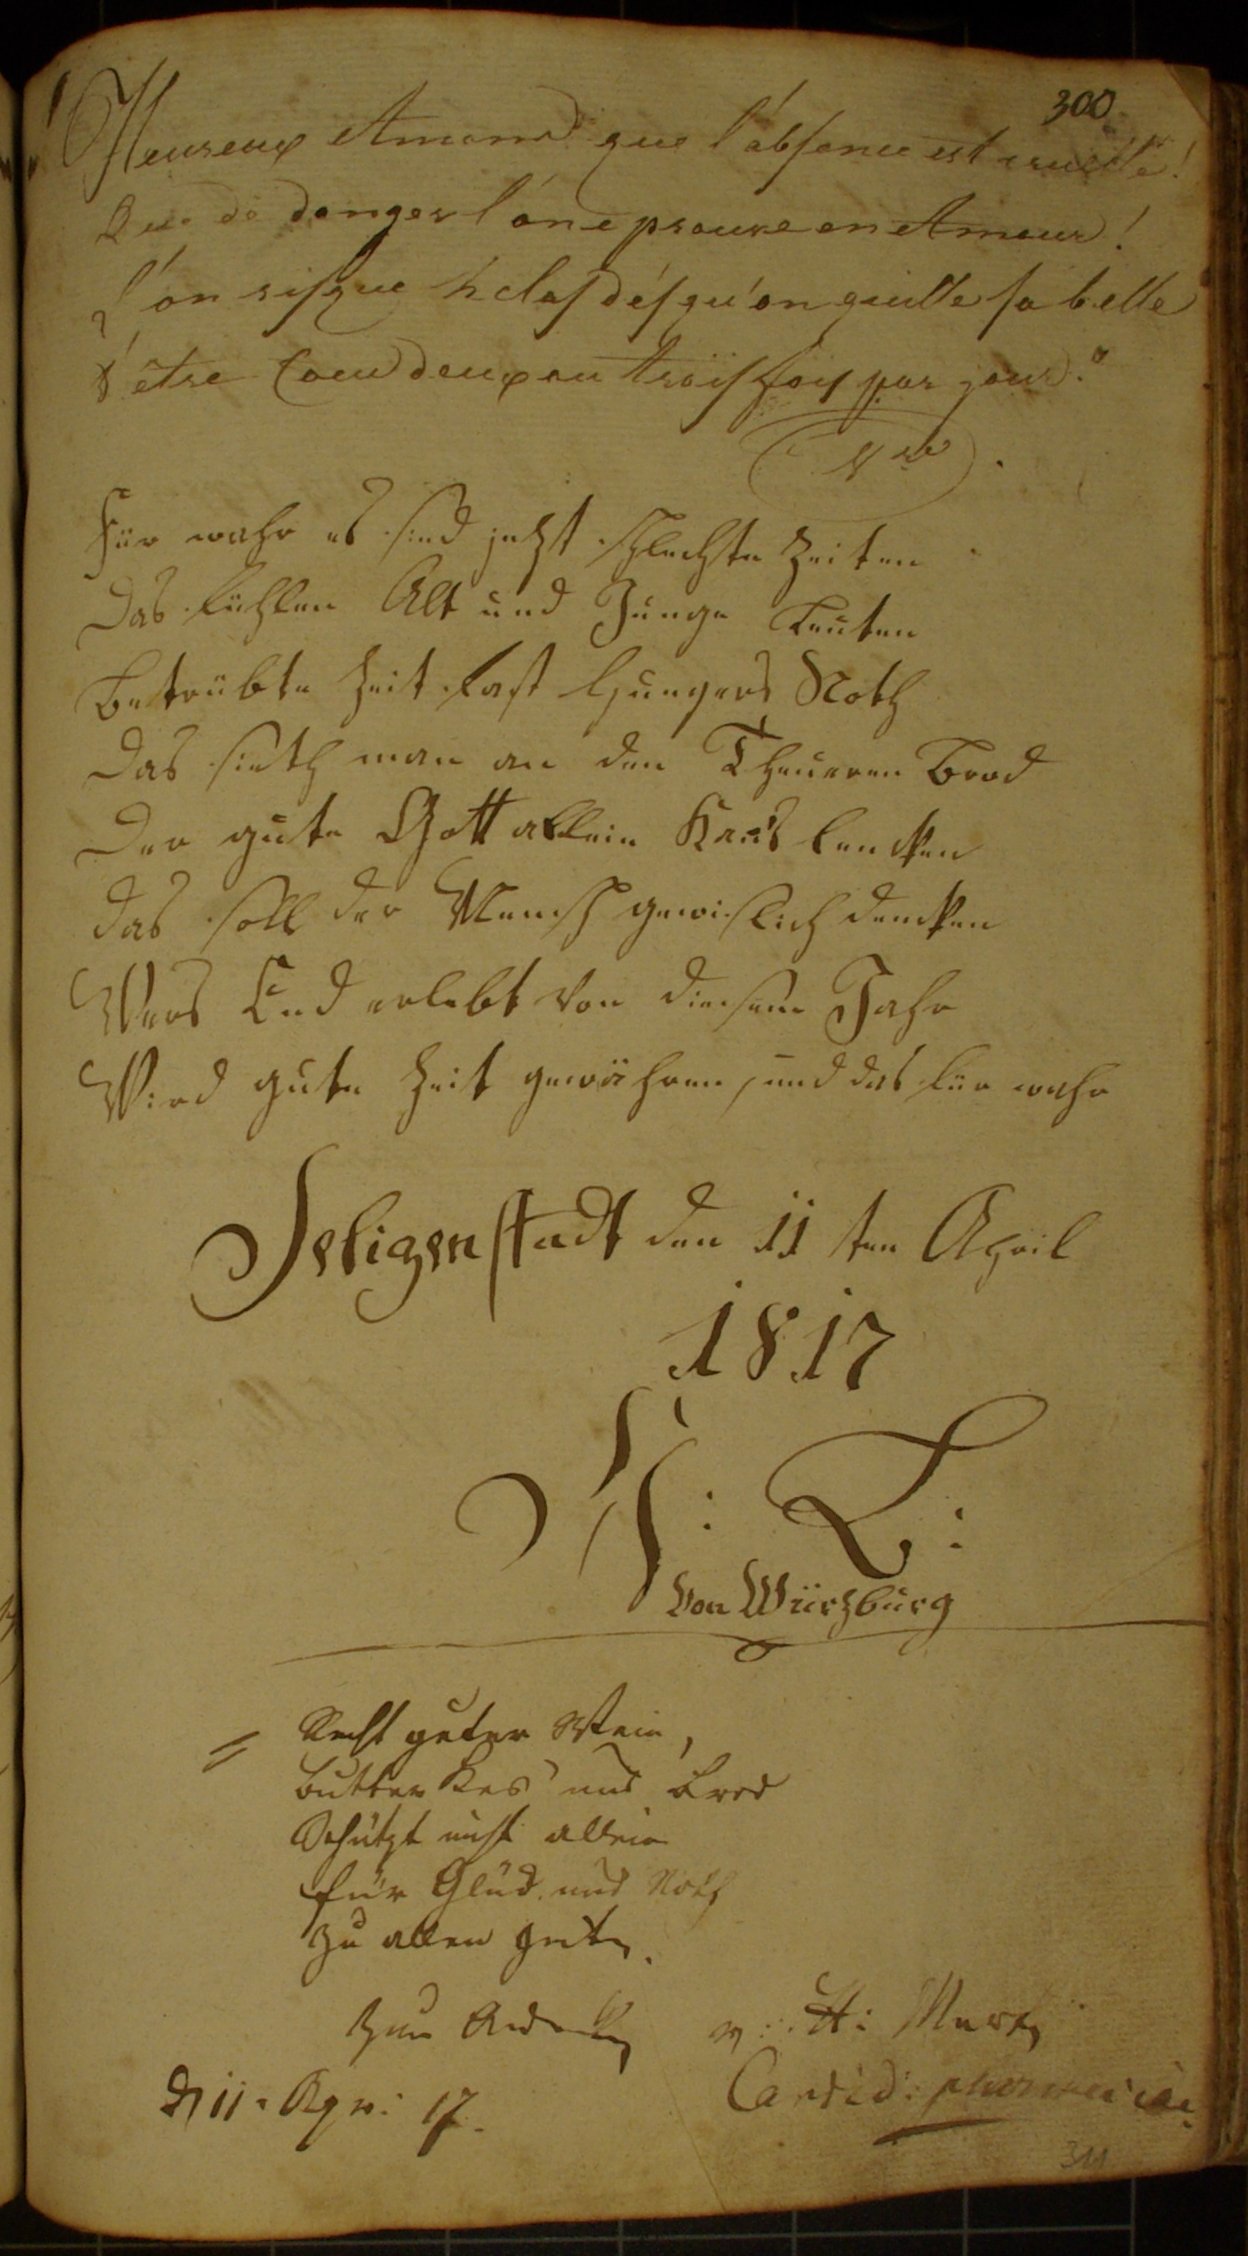 300
Heureux Amans que l'absence est cruelle!
Que de danger l'on eprouve en Amour!
L'on risque helas dés qu'on quitte sa belle
d'être Cocu deux ou trois fois par jour.
Für wahr es sind jetzt schlechte Zeiten
Das fühlen Alt und Junge Leuten
Betrübte Zeit fast Hungers Noth
Das sieth man an den Theueren Brod
Der gute Gott allein Kans lencken
das soll der Mensch gewislich dencken
Wers End erlebt von diesem Jahr
Wird gute Zeit gewähren, und das für wahr
Seligenstadt den 11ten April
1817
L:
Von Würzburg
= Recht guter Wein,
Butter Kes und Brod
Schützt nicht allein
für Glück und Noth
zu allen
Zum Andencken v: H:
d 11. Apr: 17. Candid: pharmaciae
311